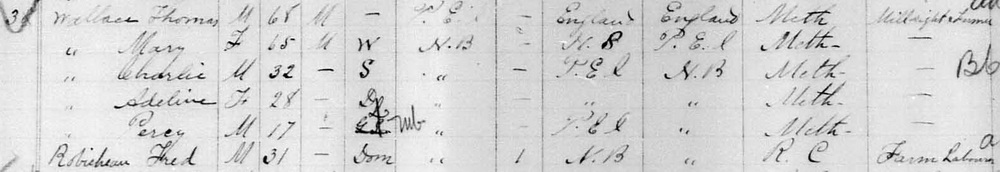 Wallace Thomas M 68 M - P.E.I - England England Meth Millright & Farmer
" Mary F 65 M W N.B - N.B P.E.I Meth- -
" Charlie M 32 - S " - P.E.I N.B Meth- - B6
" Adeline F 28 - " - " " Meth- -
" Percy M 17 - mb " - P.E.I " Meth- -
Robicheau Fred M 31 - Dom " 1 N.B " R.C Farm Labourer a